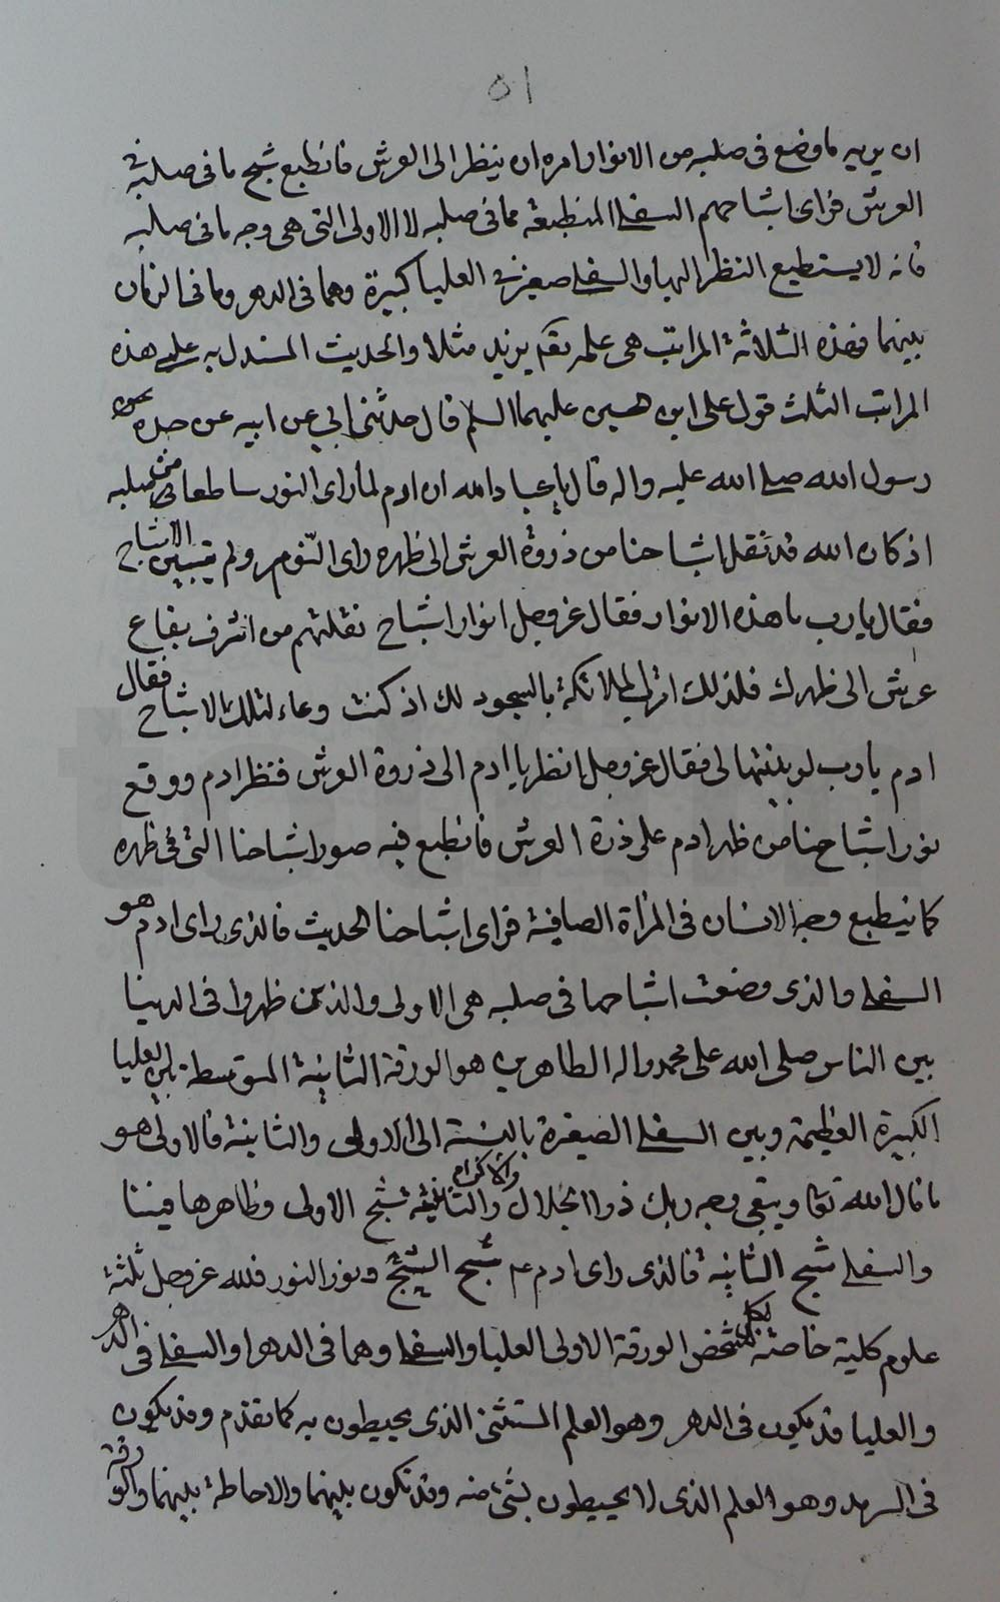 ٥١
ان يريه ما وضع فى صلبه من الانوار امره ان ينظر الى العرش فانطبع شبح ما فى صلبه فى
العرش فراى اشباحهم السفلى المنطبعة مما فى صلبه لا الاولى التى هى وجه ما فى صلبه
فانه لا يستطيع النظر اليها والسفلى صغيرة العليا كبيرة وهما فى الدهر وما فى الزمان
بينهما فهذه الثلاثة المراتب هى علمه بقيام زيد مثلا والحديث المستدل به على هذه
المراتب الثلث قول على ابن حسين عليهما السلم قال حدثنى ابي عن ابيه عن جده عن
رسول الله صلى الله عليه واله قال يا عباد الله ان ادم لما راى النور ساطعا من صلبه
اذ كان الله قد نقل اشباحنا من ذروة العرش الى ظهره راى النور ولم يتبين الاشباح
فقال يا رب ما هذه الانوار فقال عز وجل انوار اشباح نقلتهم من اشرف بقاع
عرشى الى ظهرك فلذلك امرت الملائكة بالسجود لك اذ كنت وعاء لتلك الاشباح فقال
ادم يا رب لو بينتها لى فقال عز وجل انظر يا ادم الى ذروة العرش فنظر ادم ووقع
نور اشباحنا من ظهر ادم على ذرة العرش فانطبع فيه صور اشباحنا التى فى ظهره
كما ينطبع وجه الانسان فى المراة الصافية فراى اشباحنا الحديث فالذى راى ادم هو
السفلى والذى وضعت اشباحها فى صلبه هى الاولى والذين ظهروا فى الدنيا
بين الناس صلى الله على محمد واله الطاهرين هو الورقة الثانية المتوسطة بين العليا
الكبيرة العظيمة وبين السفلى الصغيرة بالنسبة الى الاولى والثانية فالاولى هو
ما قال الله تعا ويبقى وجه ربك ذو الجلال والاكرام والثانية شبح الاولى وظاهرها فيننا
والسفلى شبح الثانية فالذى راى ادم ع شبح الشبح ونور النور فلله عز وجل ثلثة
علوم كلية خاصة لكل شخص الورقة الاولى العليا والسفلى وهما فى الدهر او السفلى فى الدهر
والعليا قد يكون فى الدهر وهو العلم المستثنى الذى يحيطون به كما تقدم وقد يكون
فى السرمد وهو العلم الذى لا يحيطون بشئ منه وقد تكون بينهما والاحاطة بينهما والورقة